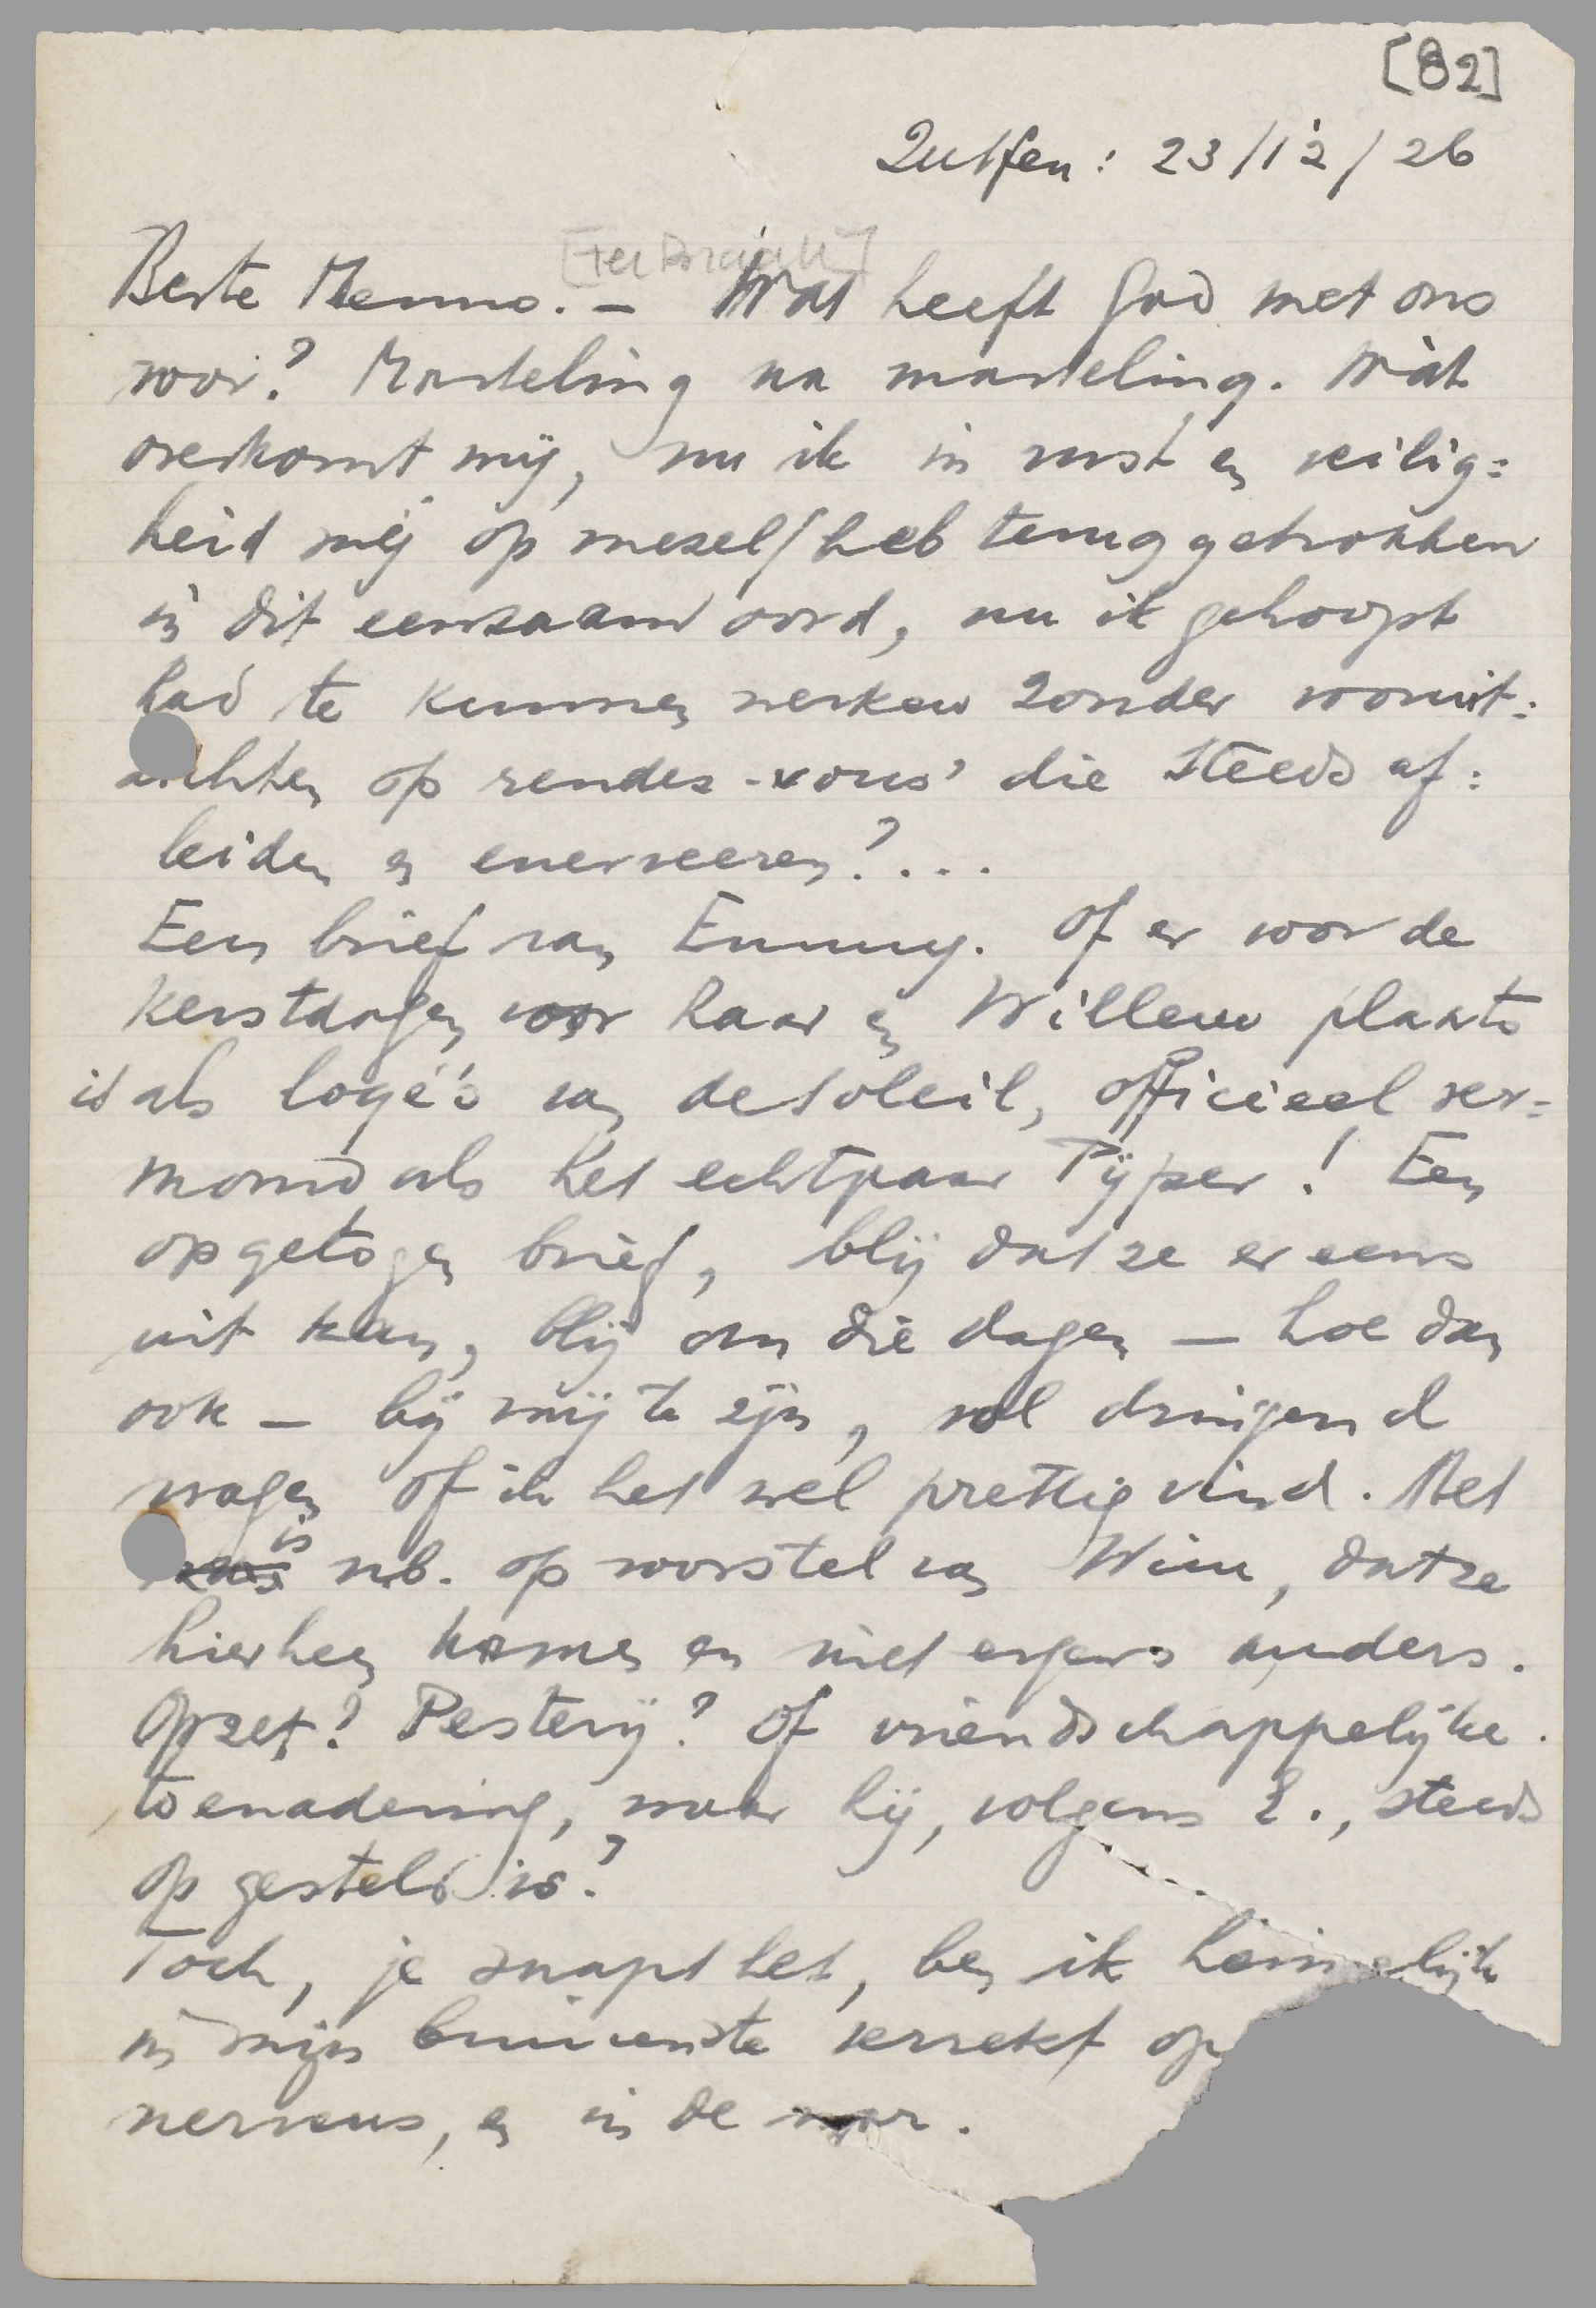 [82]
Zutfen: 23/12/26
[ter Braak]
Beste Menno. — Wat heeft God met ons
voor? Marteling na marteling. Wàt
overkomt mij, nu ik in rust en veilig=
heid mij op mezelf heb teruggetrokken
in dit eenzaam oord, nu ik gehoopt
had te kunnen werken zonder vooruit=
zichten op rendez-vous' die steeds af=
leiden en enerveeren?...
Een brief van Emmy. Of er voor de
Kerstdagen voor haar en Willem plaats
is als logé's van de Soleil, officieel ver=
momd als het echtpaar Pijper! Een
opgetogen brief, blij dat ze er eens
uit kan, blij om die dagen — hoe dan
ook — bij mij te zijn, vol dringend
vragen of ik het wel prettig vind. Het
is nb. op voorstel van Wim, dat ze
hierheen komen en niet ergens anders.
Opzet? Pesterij? Of vriendschappelijke
toenadering, waar hij, volgens E., steeds
op gesteld is?
Toch, je snapt het, ben ik heimelijk
in mijn binnenste verrekt op
nerveus, en in de war.